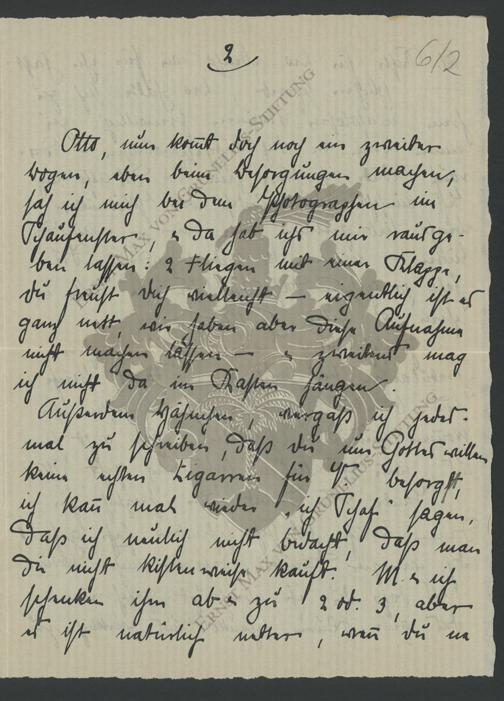 2
6/2
Otto, nun kom̄t doch noch ein zweiter
Bogen, eben beim Besorgungen machen,
sah ich mich bei dem Photographen im
Schaufenster, u. da hab ichs mir rausge-
ben lassen: 2 Fliegen mit einer Klappe,
du freust dich vielleicht – eigentlich ist es
ganz nett, wir haben aber diese Aufnahme
nicht machen lassen – u. zweitens mag
ich nicht da im Kasten hängen.
Außerdem Hähnchen, vergaß ich jedes-
mal zu schreiben, daß du um Gottes willen
keine echten Zigarren für besorgst,
ich kan̄ mal wieder "ich Schaf" sagen,
daß ich neulich nicht bedacht, daß man
die nicht kistenweise kauft. M. u. ich
schenken ihm ab u. zu 2 od. 3, aber
es ist natürlich netter, wen̄ du ne
ERNST MAX VON GRUNELIUS-STIFTUNG
ERNST MAX VON GRUNELIUS-STIFTUNG